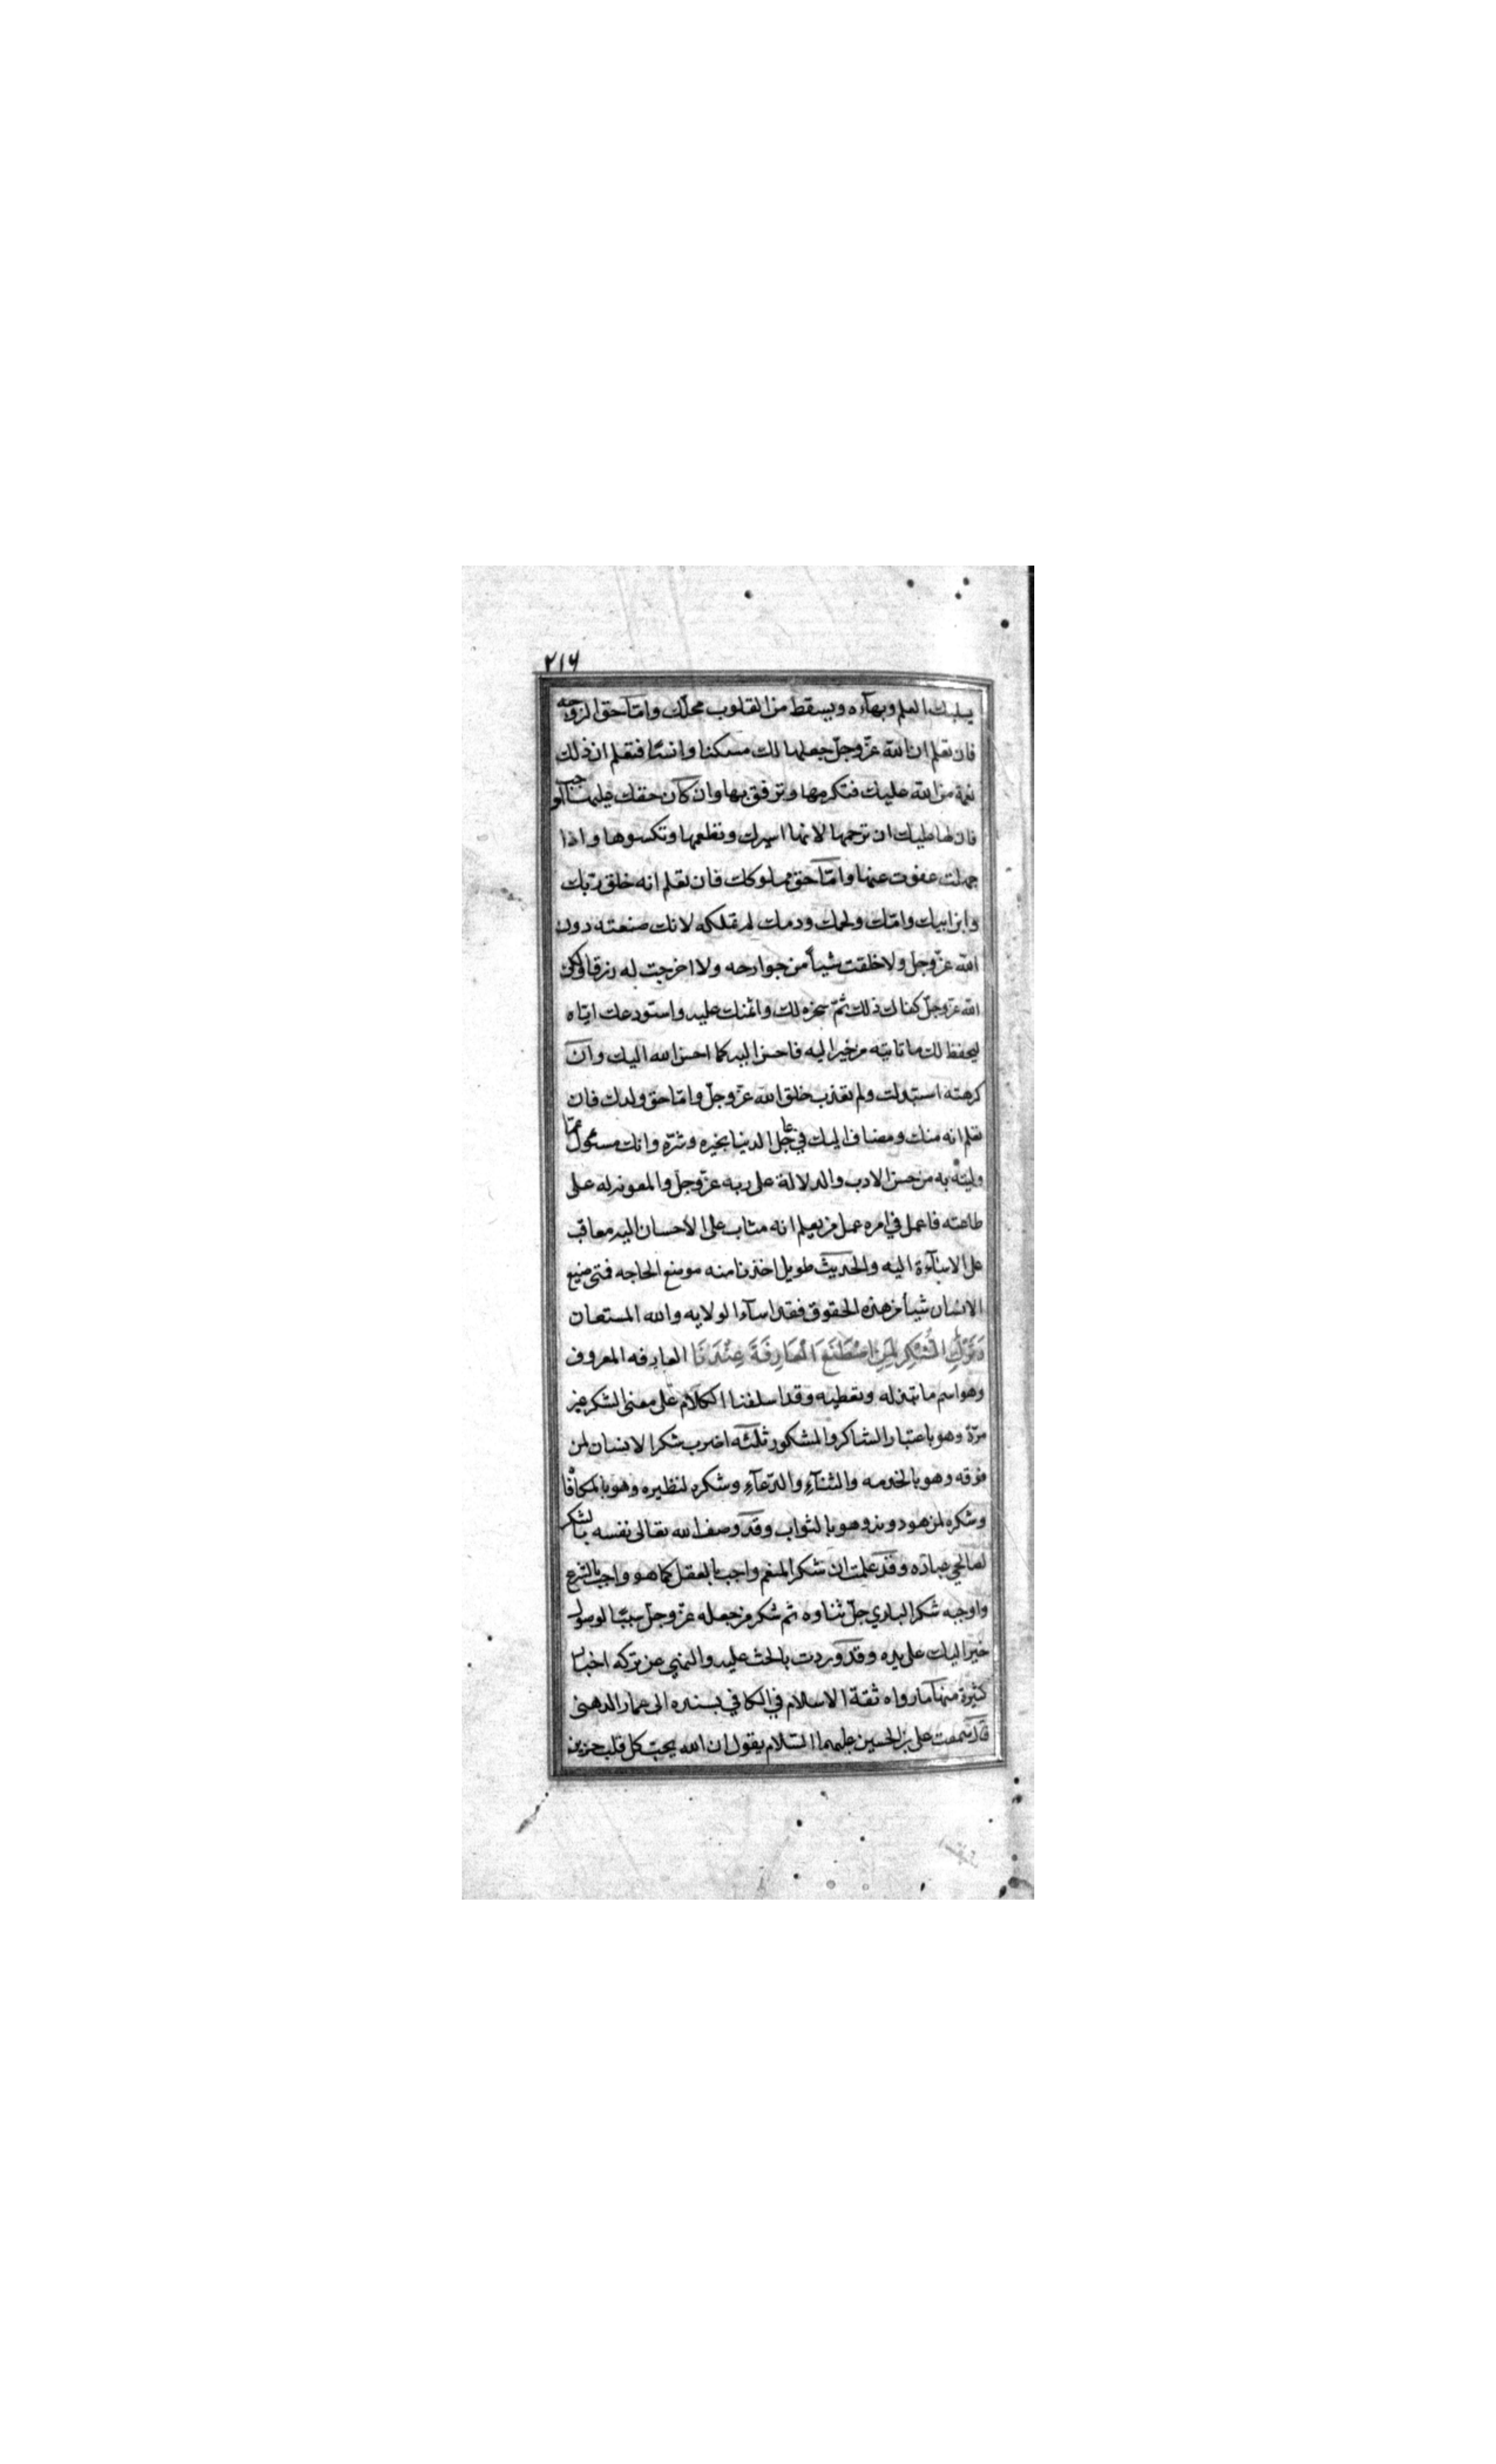 ٢١٦
يسلبك العلم وبهآءه ويسقط من القلوب محلك وامّا حق الزوجه
فان تعلم ان الله عزّ وجلّ جعلها لك مسكنا وانسًا فتعلم ان ذلك
نعمة من الله عليك فتكرمها وترفق بها وان كان حقك عليها اوجب
فان لها عليك ان ترحمها لانها اسيرك وتطعمها وتكسوها واذا
جهلت عفوت عنها وامّا حق مملوكك فان تعلم انه خلق ربّك
وابن ابيك وامّك ولحمك ودمك لم تملكه لانك صنعته دون
الله عزّ وجلّ ولا خلقت شيأ من جوارحه ولا اخرجت له رزقا ولكن
الله عزّ وجلّ كفاك ذلك ثمّ سخره لك وائمنك عليه واستودعك ايّاه
ليحفظ لك ما تاتيه من خير اليه فاحسن اليه كما احسن الله اليك وان
كرهته استبدلت ولم تعذب خلق الله عزّ وجلّ وامّا حق ولدك فان
تعلم انه منك ومضاف اليك في عاجل الدنيا بخيره وشرّه وانك مسئول عمّا
وليته به من حسن الادب والدلالة على ربه عزّ وجلّ والمعونه له على
طاعته فاعمل في امره عمل من يعلم انه مثاب على الاحسان اليه معاقب
على الاسآءة اليه والحديث طويل اخذنا منه موضع الحاجه فمتى ضيع
الانسان شيأ من هذه الحقوق فقد اسآء الولايه والله المستعان
وَتَرْكِ الشُّكْرِ لِمَنِ اصْطَنَعَ الْعَارِفَةَ عِنْدَنَا العارفه المعروف
وهو اسم ما تبذله وتعطيه وقد اسلفنا الكلام على معنى الشكر غير
مرّة وهو باعتبار الشاكر والمشكور ثلثه اضرب شكر الانسان لمن
فوقه وهو بالخدمه والثنآءِ والدعآءِ وشكره لنظيره وهو بالمكافأة
وشكره لمن هو دونه وهو بالثواب وقد وصف الله تعالى نفسه بالشكر
لصالحي عباده وقد علمت ان شكر المنعم واجب بالعقل كما هو واجب بالشرع
واوجبه شكر الباري جلّ ثناوه ثم شكر من جعله عزّ وجلّ سببًا لوصول
خير اليك على يده وقد وردت بالحث عليه والنهي عن تركه اخبار
كثيرة منها ما رواه ثقة الاسلام في الكافي بسنده الى عمار الدهنى
قال سمعت على بن الحسين عليهما السّلام يقول ان الله يحبّ كل قلب حزين